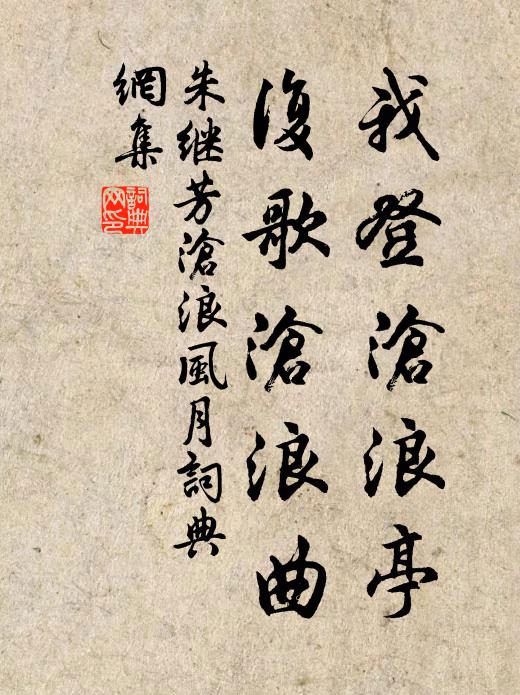 我登滄浪亭
復歌滄浪曲
朱继芳滄浪風月詞典
網集
詞典
网印